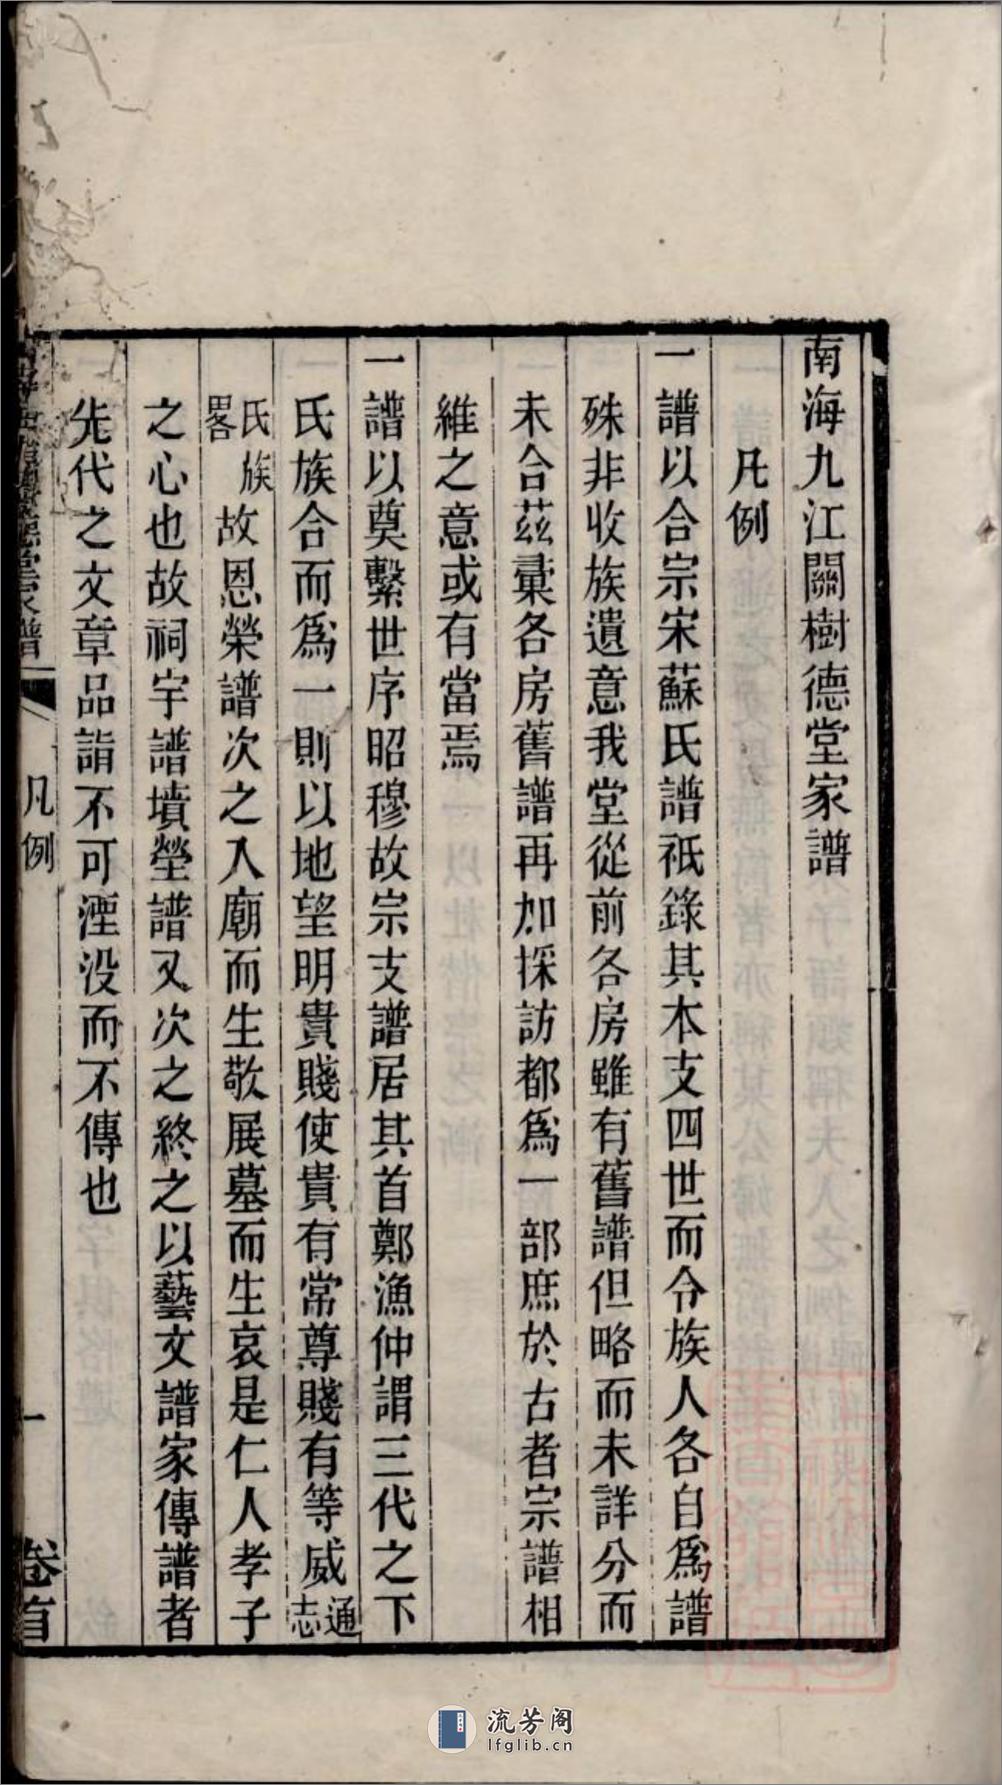 南海九江關樹德堂家譜
凡例
一譜以合宗宋蘇氏譜祇錄其本支四世而令族人各自爲譜
殊非收族遺意我堂從前各房雖有舊譜但略而未詳分而
未合茲彙各房舊譜再加採訪都爲一部庶於古者宗譜相
維之意或有當焉
一譜以奠繫世序昭穆故宗支譜居其首鄭漁仲謂三代之下
氏族合而爲一則以地望明貴賤使貴有常尊賤有等威通志
氏族畧故恩榮譜次之入廟而生敬展墓而生哀是仁人孝子
之心也故祠宇譜墳塋譜又次之終之以藝文譜家傳譜者
先代之文章品詣不可湮没而不傳也
德堂家譜
凡例
一
卷首
流芳阁
lfglib.cn